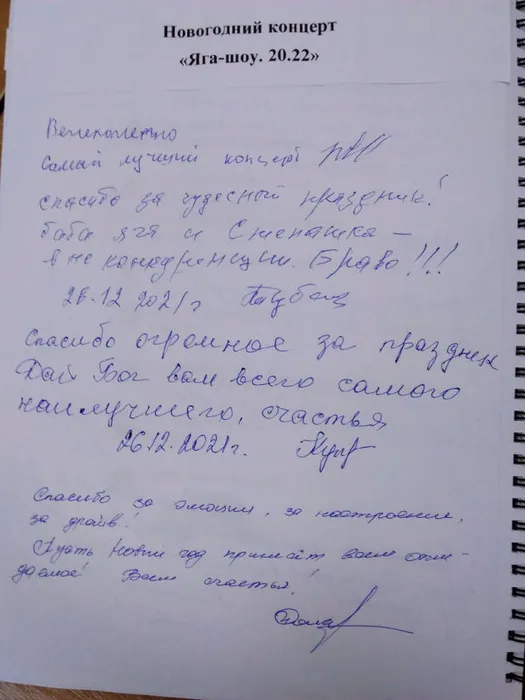 Новогодний концерт
«Яга-шоу. 20.22»
Великолепно
Самый лучший концерт
спасибо за чудесный праздник!
баба яга и Смешанка –
вне конкуренции. Браво!!!
26.12 2021г
Спасибо огромное за праздник
Дай Бог вам всего самого
наилучшего, счастья
26.12.2021г.
Спасибо за эмоции, за настроение,
за драйв!
Пусть Новый год принесёт всем ожи-
даемое! Всем счастья!